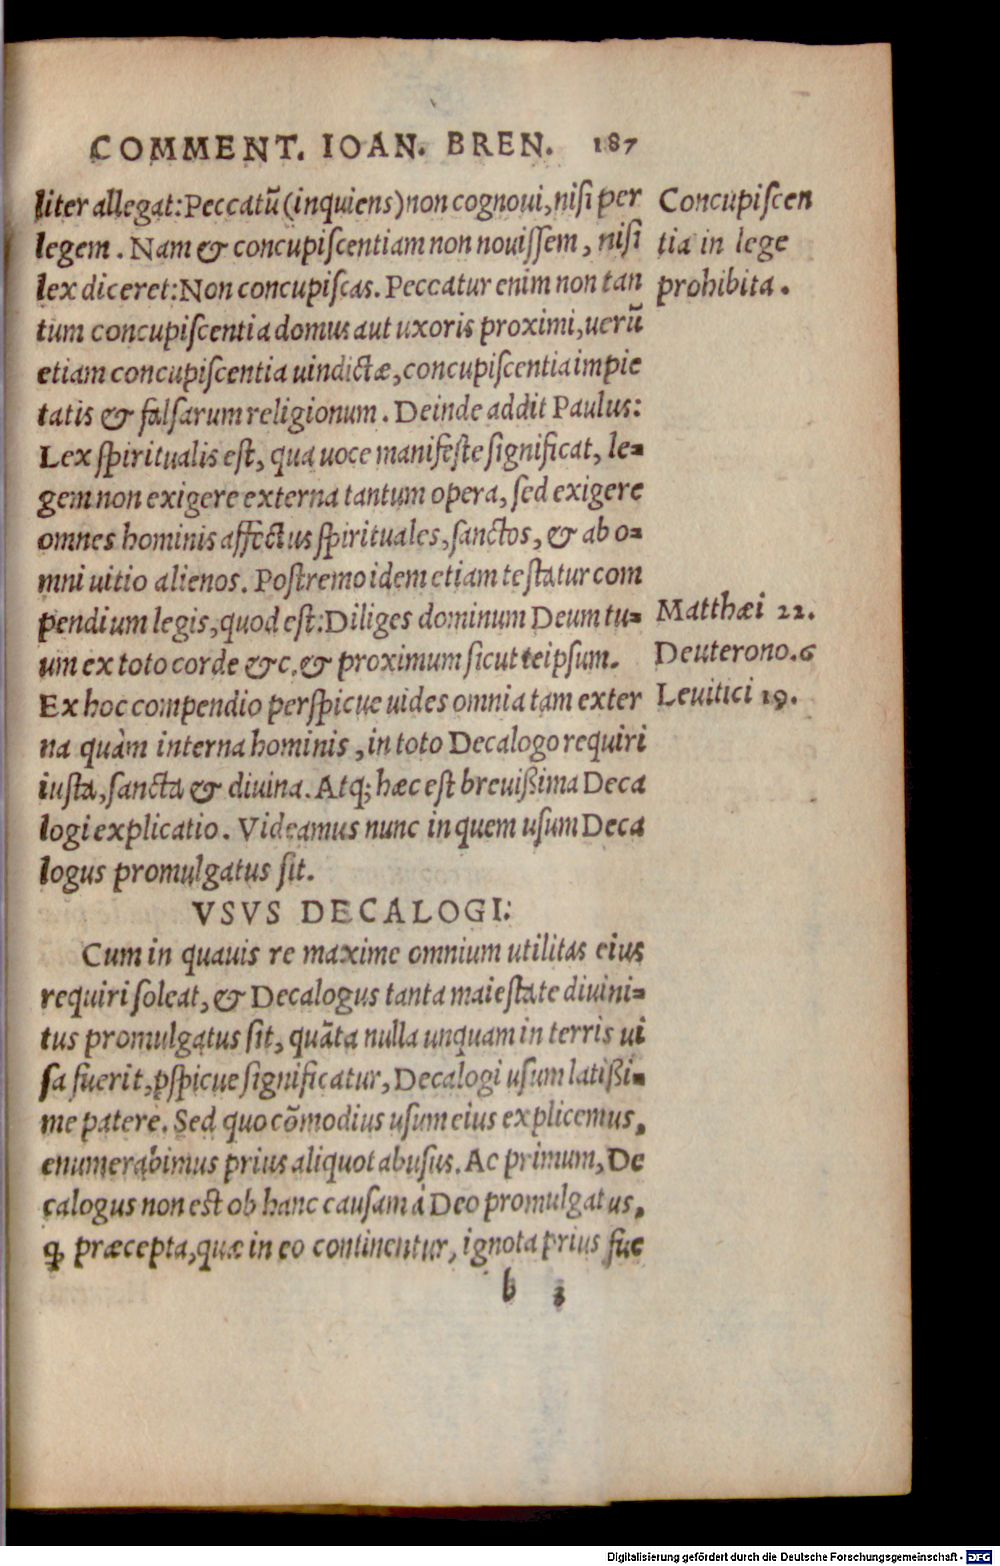 COMMENT. IOAN. BREN. 187
liter allegat: Peccatũ (inquiens) non cognoui, nisi per
legem. Nam & concupiscentiam non nouissem, nisi
lex diceret: Non concupiscas. Peccatur enim non tan
tum concupiscentia domus aut uxoris proximi, uerũ
etiam concupiscentia uindictæ, concupiscentia impie
tatis & falsarum religionum. Deinde addit Paulus:
Lex spiritualis est, qua uoce manifeste significat, le-
gem non exigere externa tantum opera, sed exigere
omnes hominis affectus spirituales, sanctos, & ab o-
mni uitio alienos. Postremo idem etiam testatur com
pendium legis, quod est: Diliges dominum Deum tu-
um ex toto corde &c. & proximum sicut teipsum.
Ex hoc compendio perspicue uides omnia tam exter
na quàm interna hominis, in toto Decalogo requiri
iusta, sancta & diuina. Atq; hæc est breuißima Deca
logi explicatio. Videamus nunc in quem usum Deca
logus promulgatus sit.
VSVS DECALOGI.
Cum in quauis re maxime omnium utilitas eius
requiri soleat, & Decalogus tanta maiestate diuini-
tus promulgatus sit, quãta nulla unquam in terris ui
sa fuerit, ꝑspicue significatur, Decalogi usum latißi-
me patere. Sed quo cõmodius usum eius explicemus,
enumerabimus prius aliquot abusus. Ac primum, De
calogus non est ob hanc causam à Deo promulgatus,
ꝙ præcepta, quæ in eo continentur, ignota prius fue
b 3
Concupiscen
tia in lege
prohibita.
Matthæi 22.
Deuterono. 6
Leuitici 19.
Digitalisierung gefördert durch die Deutsche Forschungsgemeinschaft - DFG